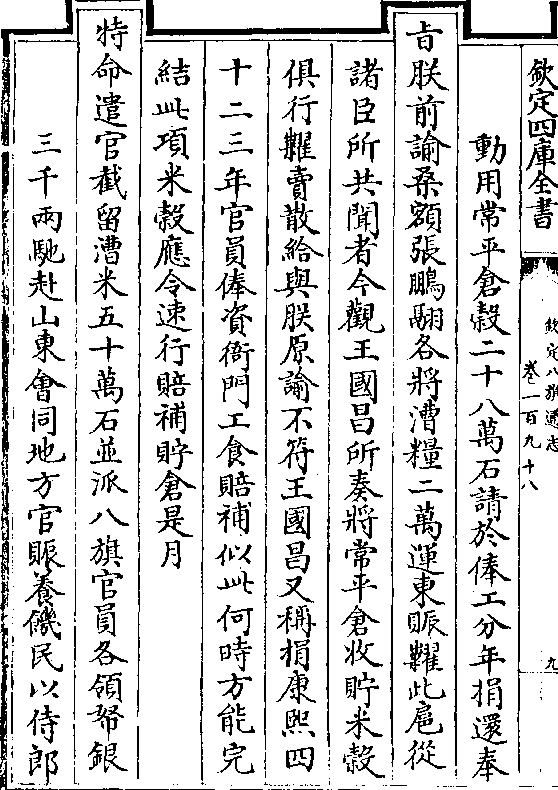 欽定四庫全書
欽定八旗通志
卷一百九十八
九
動用常平倉穀二十八萬石請於俸工分年捐還奉
旨朕前諭桑額張鵬翮各將漕糧二萬運東賑糶此扈從
諸臣所共聞者今觀王國昌所奏將常平倉收貯米穀
俱行糶賣散給與朕原諭不符王國昌又稱捐康熙四
十二三年官員俸資衙門工食賠補似此何時方能完
結此項米穀應令速行賠補貯倉是月
特命遣官截留漕米五十萬石並派八旗官員各領帑銀
三千兩馳赴山東會同地方官賑養饑民以侍郎